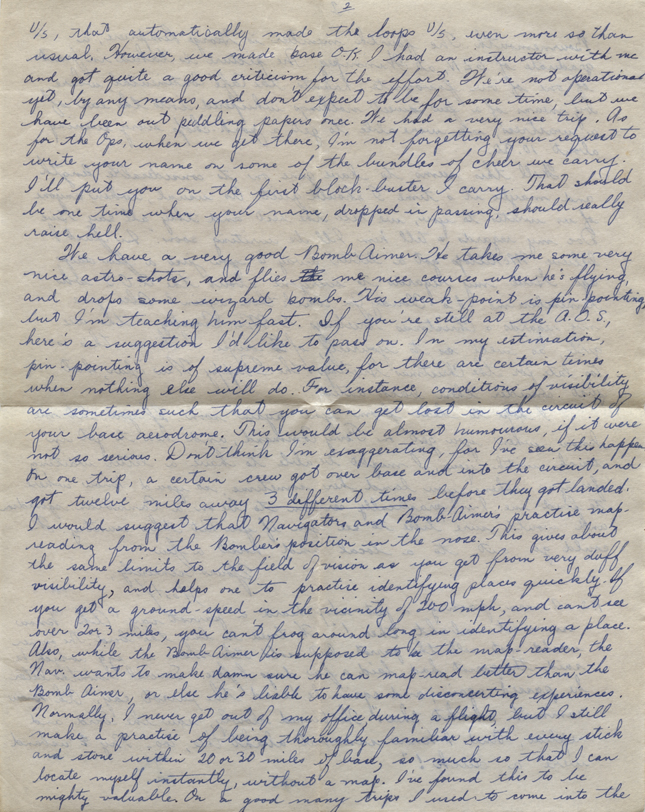 2
U/S, that automatically made the loops U/S, even more so than
usual. However, we made base O.K. I had an instructor with me
and got quite a good criticism for the effort. We're not operational
yet, by any means, and don't expect to be for some time, but we
have been out peddling papers once. We had a very nice trip. As
for the Ops, when we get there, I'm not forgetting your request to
write your name on some of the bundles of cheer we carry.
I'll put you on the first block-buster I carry. That should
be one time when your name, dropped in passing, should really
raise hell.
We have a very good Bomb-Aimer. He takes me some very
nice astro-shots, and flies the me nice courses when he's flying,
and drops some wizard bombs. His weak-point is pin-pointing,
but I'm teaching him fast. If you're still at the A.O.S,
here's a suggestion I'd like to pass on. In my estimation,
pin-pointing is of supreme value, for there are certain times
when nothing else will do. For instance, conditions of visibility
are sometimes such that you can get lost in the circuit of
your base aerodrome. This would be almost humourous, if it were
not so serious. Don't think I'm exaggerating, for I've seen this happen
On one trip, a certain crew got over base and into the circuit, and
got twelve miles away 3 different times before they got landed.
I would suggest that Navigators and Bomb-Aimers practise map-
reading from the Bomber's position in the nose. This gives about
the same limits to the field of vision as you get from very duff
visibility, and helps one to practise identifying places quickly. If
you get a ground-speed in the vicinity of 200 mph, and can't see
over 2 or 3 miles, you can't frog around long in identifying a place.
Also, while the Bomb-Aimer is supposed to be the map-reader, the
Nav. wants to make damn sure he can map-read better than the
Bomb Aimer, or else he's liable to have some disconcerting experiences.
Normally, I never get out of my office during a flight, but I still
make a practise of being thoroughly familiar with every stick
and stone within 20 or 30 miles of base, so much so that I can
locate myself instantly, without a map. I've found this to be
mighty valuable. On a good many trips I used to come into the